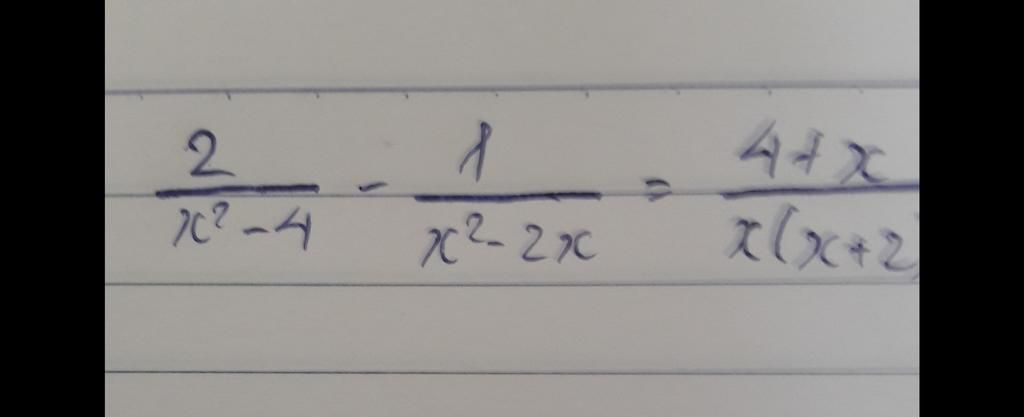 2/(x²-4) - 1/(x²-2x) = (4+x)/(x(x+2)